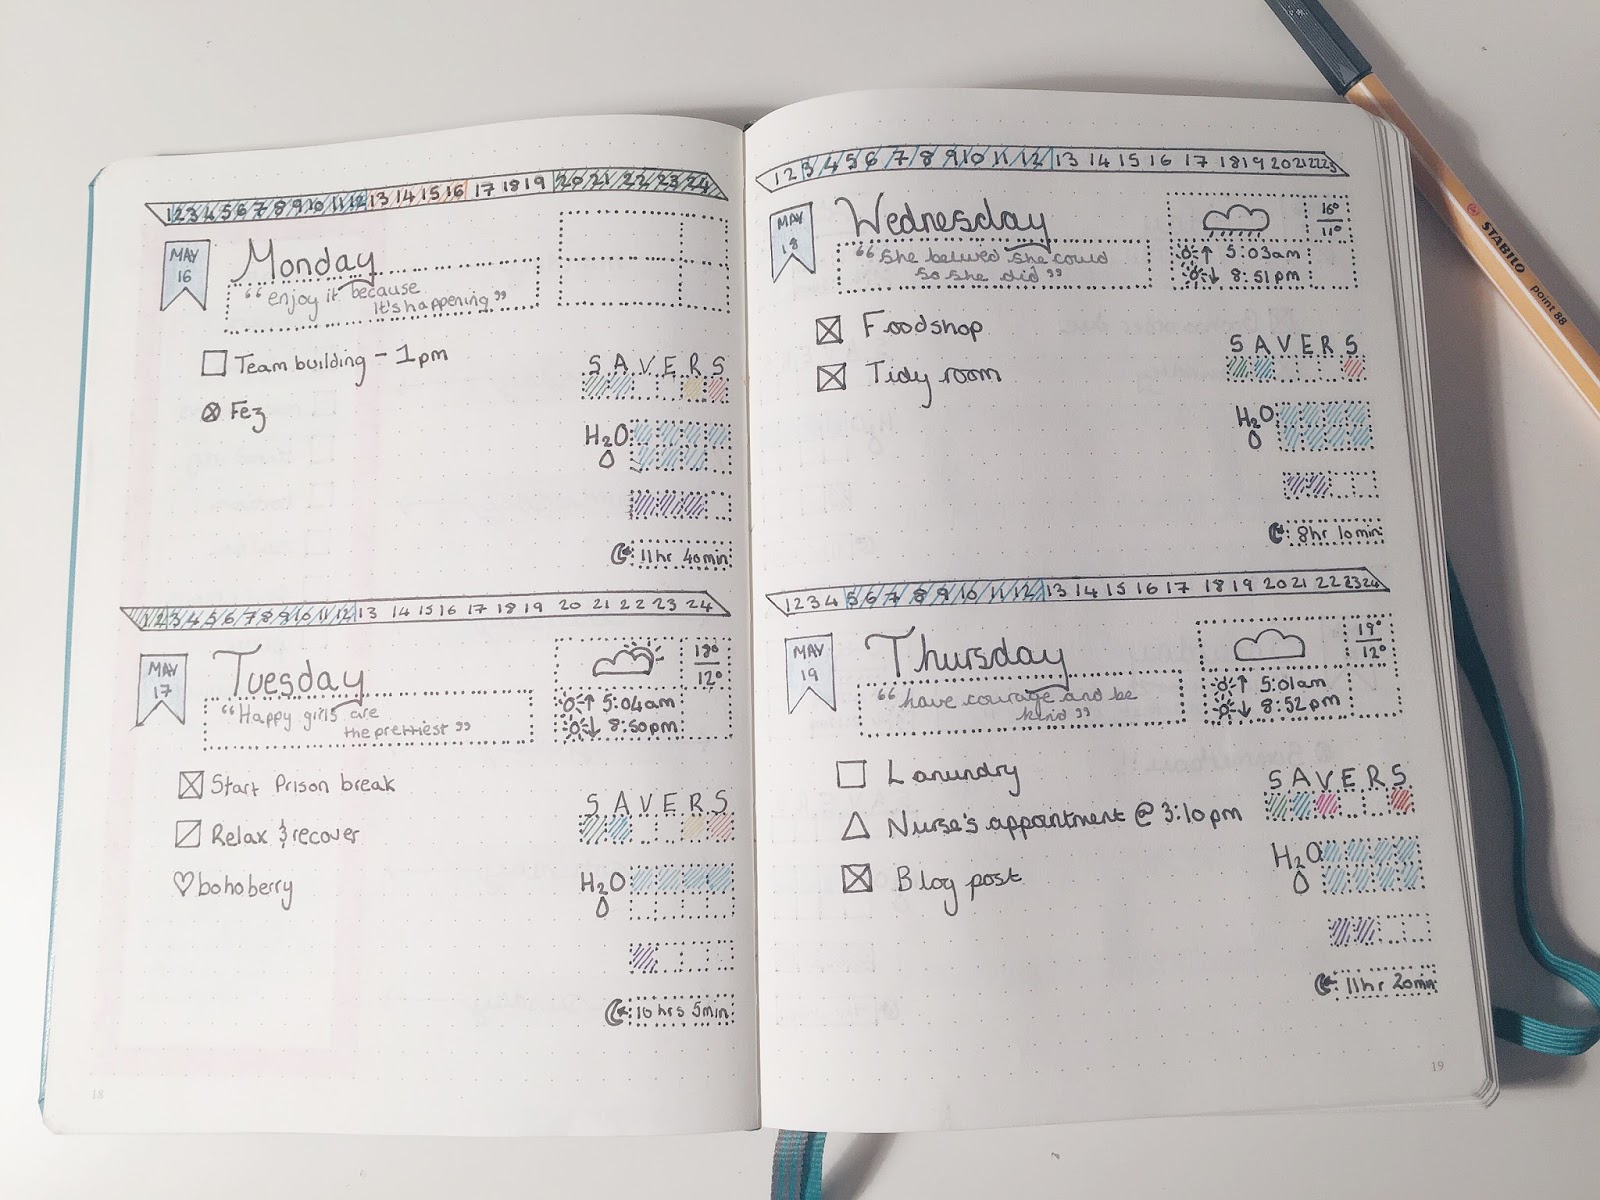 1 2 3 4 5 6 7 8 9 10 11 12 13 14 15 16 17 18 19 20 21 22 23 24
MAY
16
Monday
“enjoy it because
it's happening”
Team building - 1pm
Fez
S A V E R S
H2O
11hr 40min
1 2 3 4 5 6 7 8 9 10 11 12 13 14 15 16 17 18 19 20 21 22 23 24
MAY
17
Tuesday
“Happy girls are
the prettiest”
18°
12°
5:04am
8:50pm
Start Prison break
Relax & recover
bohoberry
S A V E R S
H2O
10hrs 5min
18
1 2 3 4 5 6 7 8 9 10 11 12 13 14 15 16 17 18 19 20 21 22 23
MAY
18
Wednesday
“She belived she could
so she did”
16°
11°
5:03am
8:51pm
Foodshop
Tidy room
S A V E R S
H2O
8hr 10min
1 2 3 4 5 6 7 8 9 10 11 12 13 14 15 16 17 18 19 20 21 22 23 24
MAY
19
Thursday
“have courage and be
kind”
19°
12°
5:01am
8:52pm
Lanundry
Nurse's appointment @ 3:10pm
Blog post
S A V E R S
H2O
11hr 20min
19
STABILO
point 88